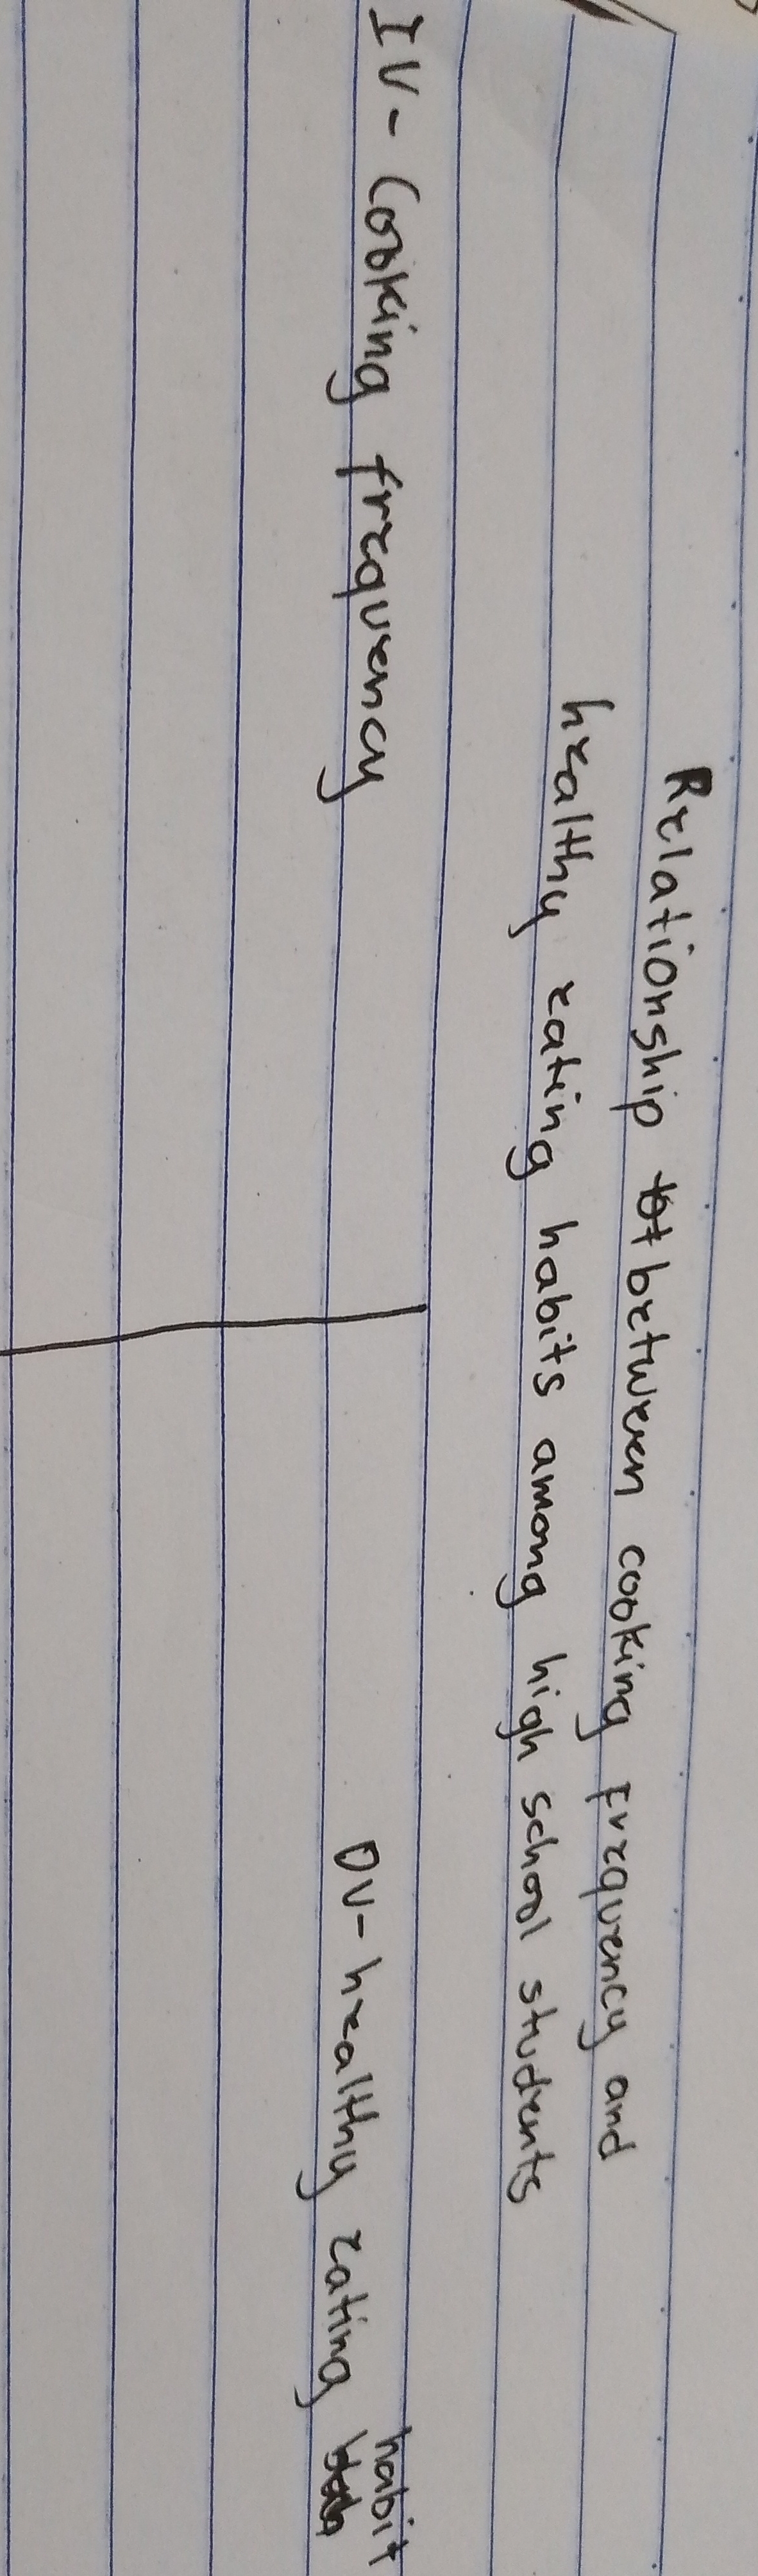 Relationship between cooking frequency and
healthy eating habits among high school students
IV- Cooking frequency
DV- healthy eating habit